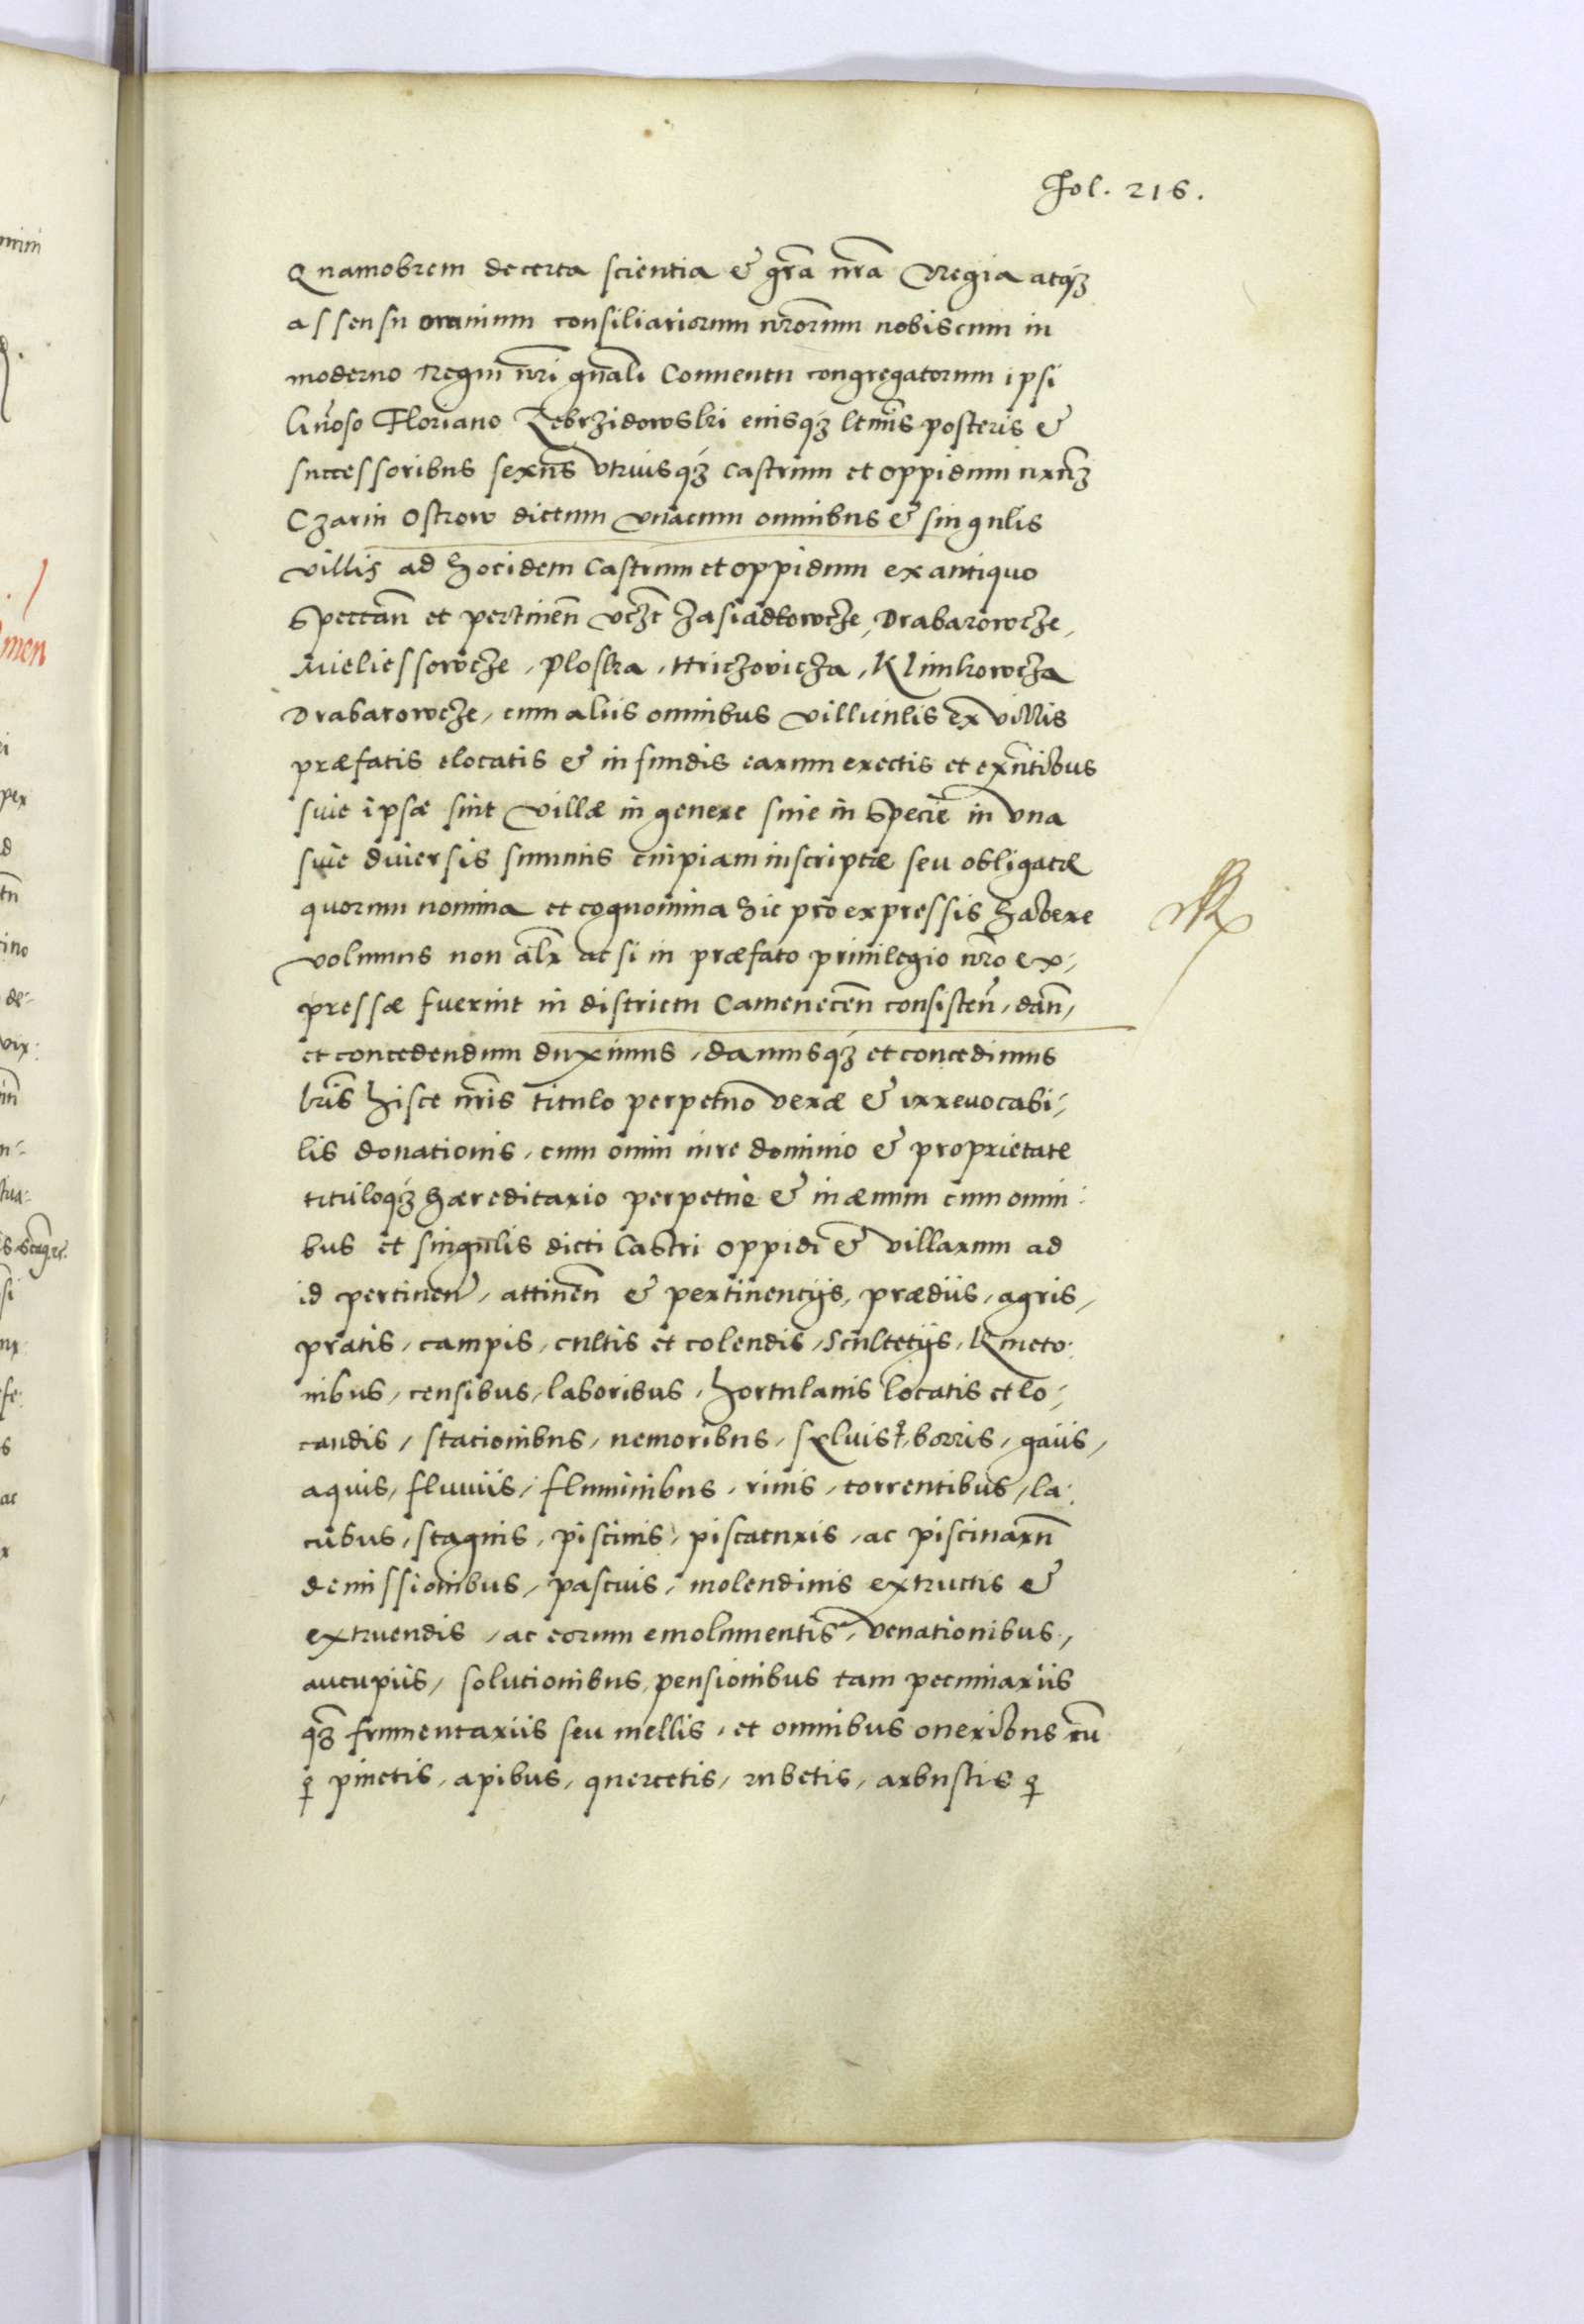 Fol. 216.
Quamobrem de certa scientia & gr̃a nr̃a Regia atq́ꝫ
assensu omnium consiliariorum nr̃orum nobiscum in
moderno Regni nr̃i gn̄ali Conuentu congregatorum ipsi
Gn̄oso Floriano Zebrzidowski eiusq́ꝫ ltm̄is posteris &
successoribus sexus vtriusq́ꝫ castrum et oppidum nr̃uꝫ
Czarin Ostrow dictum vnacum omnibus & singulis
villis ad hocidem Castrum et oppidum ex antiquo
spectan̄ et pertinen̄ vcꝫt Zasiadkowcze, Drabarowcze,
Mieliessowcze, Ploska, Hriczovicza, Klimkowcza
Drabarowcze, cum aliis omnibus villiculis ex villis
præfatis elocatis & in fundis earum erectis et exn̄tibus
siue ipsæ sint villæ in genere siue in specie in vna
siue diuersis summis cuipiam inscriptæ seu obligatæ
quorum nomina et cognomina hic pro expressis habere
volumus non alr̃ ac si in præfato priuilegio nr̃o ex-
pressæ fuerint in districtu Camenecen̄ consisten̄, dan̄,
et concedendum duximus, damusq́ꝫ et concedimus
lr̃is hisce nr̃is titulo perpetuo veræ & irreuocabi-
lis donationis, cum omni iure dominio & proprietate
tituloq́ꝫ hæreditario perpetue & in æuum cum omni-
bus et singulis dicti Castri oppidi & villarum ad
id pertinen̄, attinen̄ & pertinencijs, prædiis, agris,
pratis, campis, cultis et colendis, scultetijs, Kmeto-
nibus, censibus, laboribus, hortulanis locatis et lo-
candis, stationibus, nemoribus, syluis, borris, gaiis,
aquis, fluuiis, fluminibus, riuis, torrentibus, la-
cubus, stagnis, piscinis, piscaturis, ac piscinarū
demissionibus, pascuis, molendinis extructis &
extruendis, ac eorum emolumentis, venationibus,
aucupiis, solutionibus, pensionibus tam pecuniariis
qꝫ frumentariis seu mellis, et omnibus oneribus cū
pinetis, apibus, quercetis, rubetis, arbustis